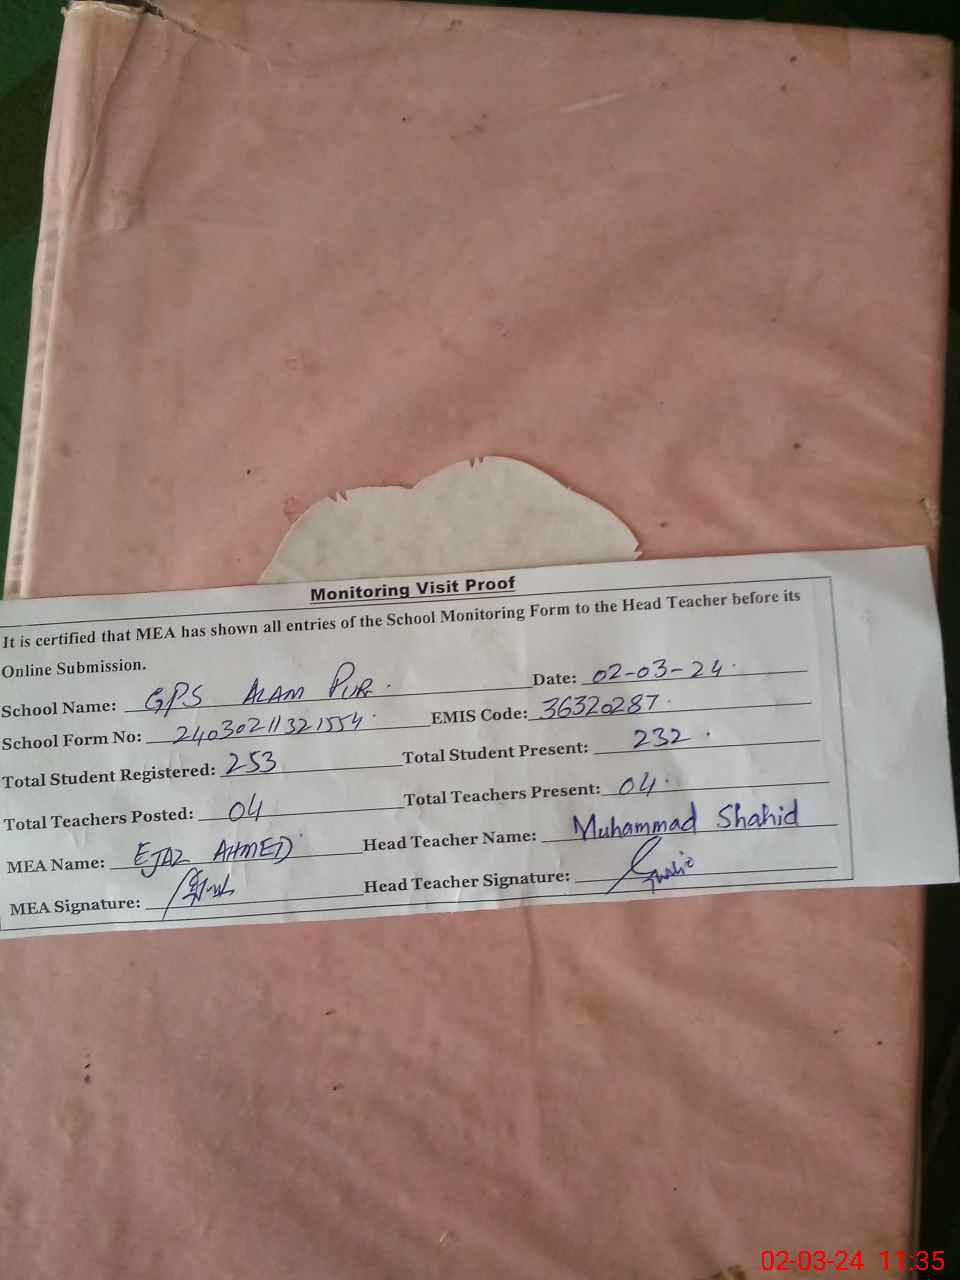 Monitoring Visit Proof
It is certified that MEA has shown all entries of the School Monitoring Form to the Head Teacher before its
Online Submission.
School Name: GPS ALAM PUR. Date: 02-03-24.
School Form No: 24030211321554. EMIS Code: 36320287.
Total Student Registered: 253 Total Student Present: 232.
Total Teachers Posted: 04 Total Teachers Present: 04.
MEA Name: EJAZ AHMED Head Teacher Name: Muhammad Shahid
MEA Signature: Head Teacher Signature:
02-03-24 11:35